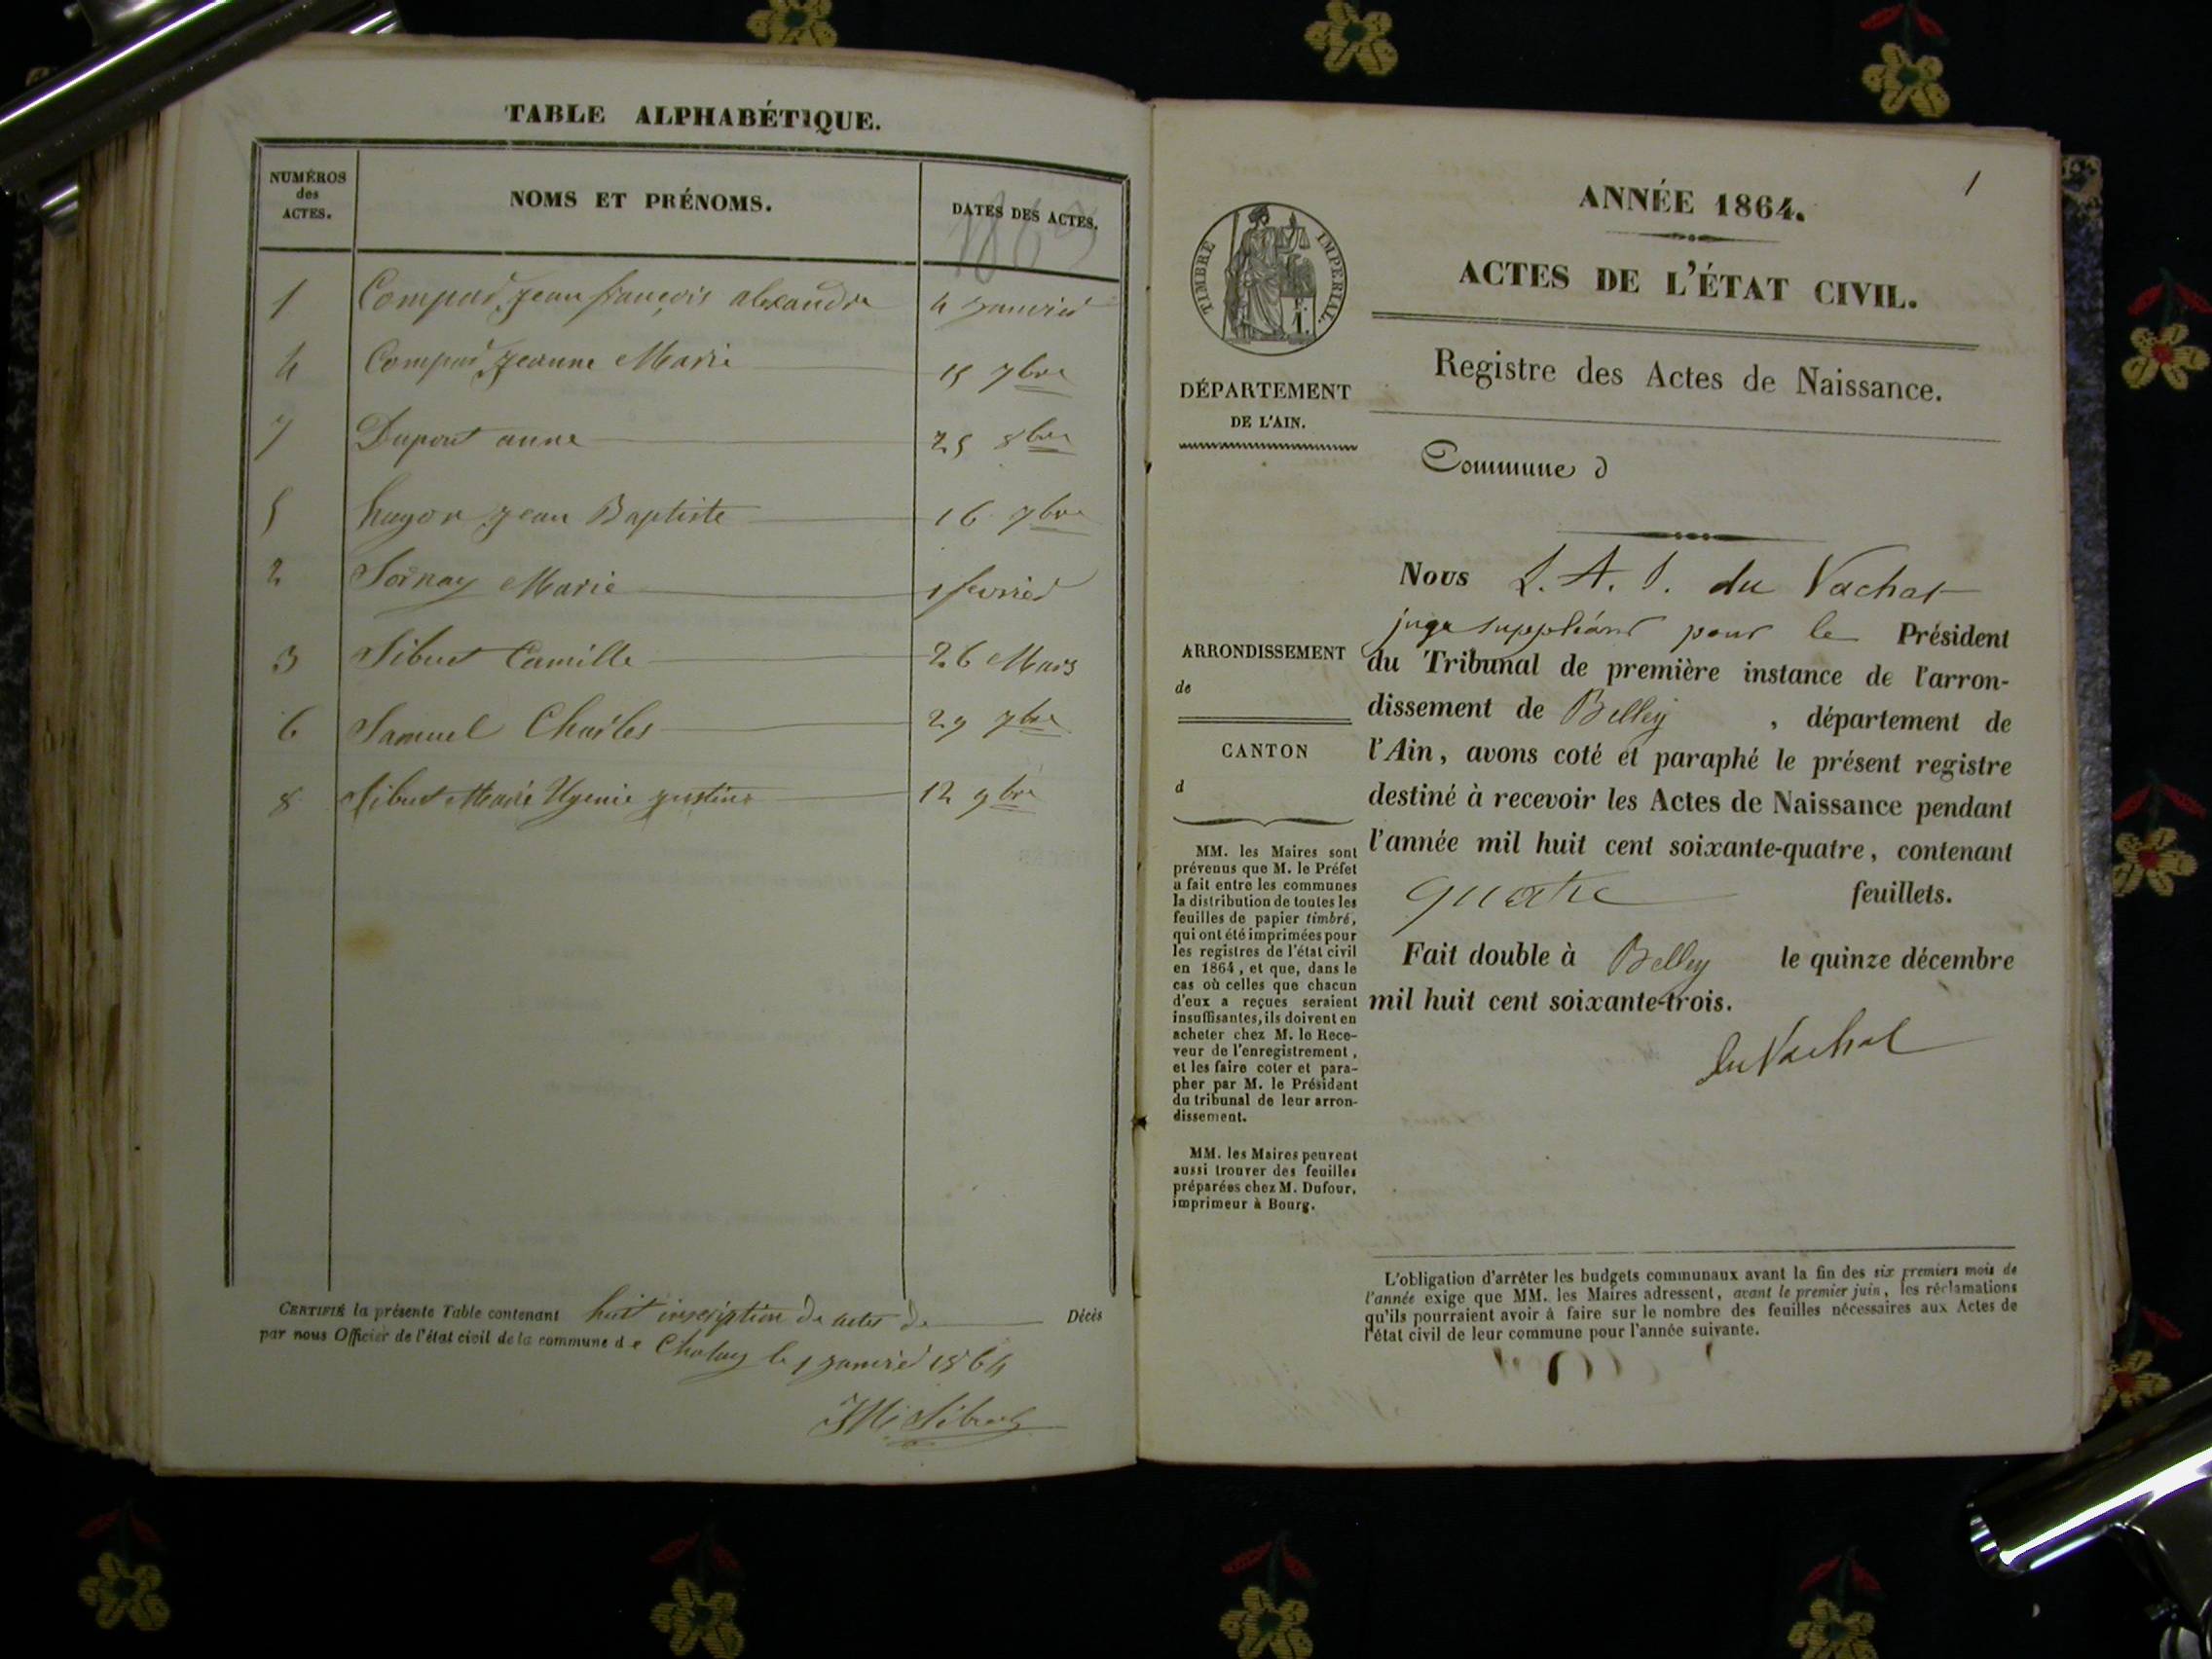 TABLE ALPHABÉTIQUE.
NUMÉROS
des
ACTES.
NOMS ET PRÉNOMS.
DATES DES ACTES.
1863
1 Jean françois alexandre 4 Janvier
4 Jeanne Marie 15 7bre
7 Dupont anne 25 8bre
5 hugon Jean Baptiste 16 7bre
2 Marie 1 fevrier
3 Sibuet Camille 26 Mars
6 Samuel Charles 29 7bre
8 Sibuet Marie Ugenie Justine 12 9bre
CERTIFIÉ la présente Table contenant huit inscription de actes de Décès
par nous Officier de l'état civil de la commune de le 1 janvier 1864
Sibuet
1
ANNÉE 1864.
ACTES DE L'ÉTAT CIVIL.
TIMBRE IMPÉRIAL.
Registre des Actes de Naissance.
DÉPARTEMENT
DE L'AIN.
Commune d
ARRONDISSEMENT
de
CANTON
d
Nous L. A. du Vachat
juge suppléant pour le Président
du Tribunal de première instance de l'arron-
dissement de Belley , département de
l'Ain, avons coté et paraphé le présent registre
destiné à recevoir les Actes de Naissance pendant
l'année mil huit cent soixante-quatre, contenant
quatre feuillets.
Fait double à Belley le quinze décembre
mil huit cent soixante-trois.
du Vachat
MM. les Maires sont
prévenus que M. le Préfet
a fait entre les communes
la distribution de toutes les
feuilles de papier timbré,
qui ont été imprimées pour
les registres de l'état civil
en 1864, et que, dans le
cas où celles que chacun
d'eux a reçues seraient
insuffisantes, ils doivent en
acheter chez M. le Rece-
veur de l'enregistrement,
et les faire coter et para-
pher par M. le Président
du tribunal de leur arron-
dissement.
MM. les Maires peuvent
aussi trouver des feuilles
préparées chez M. Dufour,
imprimeur à Bourg.
L'obligation d'arrêter les budgets communaux avant la fin des six premiers mois de
l'année exige que MM. les Maires adressent, avant le premier juin, les réclamations
qu'ils pourraient avoir à faire sur le nombre des feuilles nécessaires aux Actes de
l'état civil de leur commune pour l'année suivante.